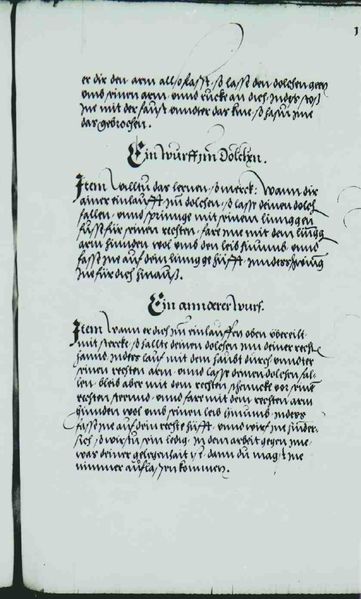 er dir den arm also fasst, so lasst den dolchen geen
umb seinen arm unnd rucke an dich inders stoß
jne mit der faust unnder das kine so hastu jme
den gebrochen.
Ein wurff im Dolchen.
Item Willtu dar lernen, so merck: Wann dir
ainer einlaufft im dolchen, so lass deinen dolch
fallen, unnd springe mit deinem linnggen
fuss für seinen rechten, far jme mit dem lingg
arm hinden wol umb den leib hinumb, unnd
fass jne auf dein lingge hüfft
jne für dich hinauß.
Ein annderer wurf.
Item Wann er dich im einlauffen oben übereilt
mit sterck, so hallte deinen dolchen inn deiner rechte
hannd inders lauf mit dem haubt durch unnder
seinen rechten arm, unnd lass deinen dolchen fal-
len, bleib aber mit dem rechten schennckl vor seine
rechten, unnd fare mit dem rechten arm
hinden wol umb seinen leib hinumb, inders
fass jne auf dein rechte hüfft, unnd wirf jne hinder
sich, so wirstu sein ledig. in dem arbeit gegen jme
was deiner gelegenhait ist, dann du magst jne
nimmer auflassen kommen.